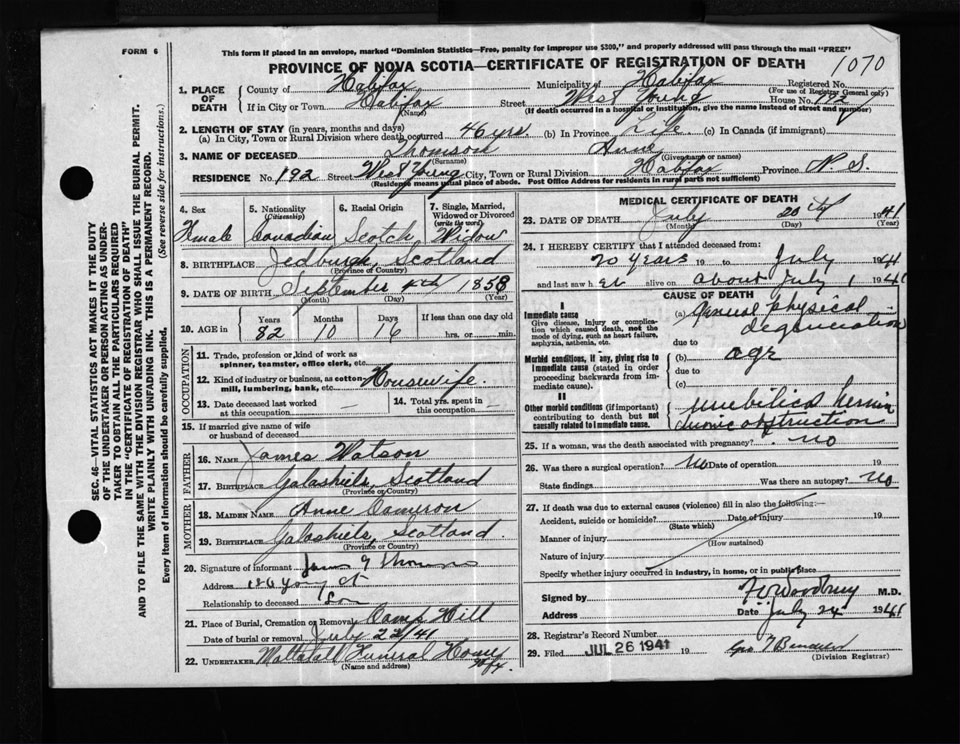 FORM 6
This form if placed in an envelope, marked "Dominion Statistics—Free, penalty for improper use $300," and properly addressed will pass through the mail "FREE"
PROVINCE OF NOVA SCOTIA—CERTIFICATE OF REGISTRATION OF DEATH
1070
1. PLACE OF DEATH
County of Halifax Municipality of Halifax Registered No.
(For use of Registrar General only)
If in City or Town Halifax Street West Young House No. 192
(Name) (If death occurred in a hospital or institution, give the name instead of street and number)
2. LENGTH OF STAY (in years, months and days)
(a) In City, Town or Rural Division where death occurred 46 yrs (b) In Province Life (c) In Canada (if immigrant)
3. NAME OF DECEASED Thomson Anne
(Surname) (Given name or names)
RESIDENCE No. 192 Street West Young City, Town or Rural Division Halifax Province N. S.
(Residence means usual place of abode. Post Office Address for residents in rural parts not sufficient)
4. Sex 5. Nationality (Citizenship) 6. Racial Origin 7. Single, Married, Widowed or Divorced (write the word)
Female Canadian Scotch Widow
8. BIRTHPLACE Jedburgh, Scotland
(Province or Country)
9. DATE OF BIRTH September 4th 1858
(Month) (Day) (Year)
10. AGE in Years Months Days If less than one day old
82 10 16 hrs. or min.
OCCUPATION
11. Trade, profession or kind of work as spinner, teamster, office clerk, etc.
12. Kind of industry or business, as cotton mill, lumbering, bank, etc. Housewife.
13. Date deceased last worked at this occupation —
14. Total yrs. spent in this occupation —
15. If married give name of wife or husband of deceased
FATHER
16. NAME James Watson
17. BIRTHPLACE Galashiels, Scotland
(Province or Country)
MOTHER
18. MAIDEN NAME Anne Cameron
19. BIRTHPLACE Galashiels, Scotland.
(Province or Country)
20. Signature of informant James G Thomson
Address 186 Young St
Relationship to deceased Son
21. Place of Burial, Cremation or Removal Camp Hill
Date of burial or removal July 22/41
22. UNDERTAKER Funeral Home Hfx.
(Name and address)
MEDICAL CERTIFICATE OF DEATH
23. DATE OF DEATH July 20th 1941
(Month) (Day) (Year)
24. I HEREBY CERTIFY that I attended deceased from:
20 years 19 to July 1941
and last saw h er alive on about July 1 1941
CAUSE OF DEATH
I
Immediate cause
Give disease, injury or complication which caused death, not the mode of dying, such as heart failure, asphyxia, asthenia, etc.
(a) General physical degeneration
due to
Morbid conditions, if any, giving rise to immediate cause (stated in order proceeding backwards from immediate cause).
(b) age
due to
(c)
II
Other morbid conditions (if important) contributing to death but not causally related to immediate cause.
umbilical hernia
obstruction
25. If a woman, was the death associated with pregnancy? no
26. Was there a surgical operation? no Date of operation 19
State findings Was there an autopsy? no
27. If death was due to external causes (violence) fill in also the following:—
Accident, suicide or homicide? Date of injury 19
(State which)
Manner of injury
(How sustained)
Nature of injury
Specify whether injury occurred in industry, in home, or in public place
Signed by Woodbury M.D.
Address Date July 24 1941
28. Registrar's Record Number
29. Filed JUL 26 1941 19
(Division Registrar)
SEC. 46—VITAL STATISTICS ACT MAKES IT THE DUTY
OF THE UNDERTAKER OR PERSON ACTING AS UNDER-
TAKER TO OBTAIN ALL THE PARTICULARS REQUIRED
IN THE "CERTIFICATE OF REGISTRATION OF DEATH"
AND TO FILE THE SAME WITH THE DIVISION REGISTRAR WHO SHALL ISSUE THE BURIAL PERMIT.
WRITE PLAINLY WITH UNFADING INK. THIS IS A PERMANENT RECORD.
Every item of information should be carefully supplied. (See reverse side for instructions.)